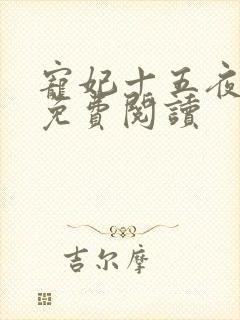 寵妃十五夜
免費閱讀
吉尔摩